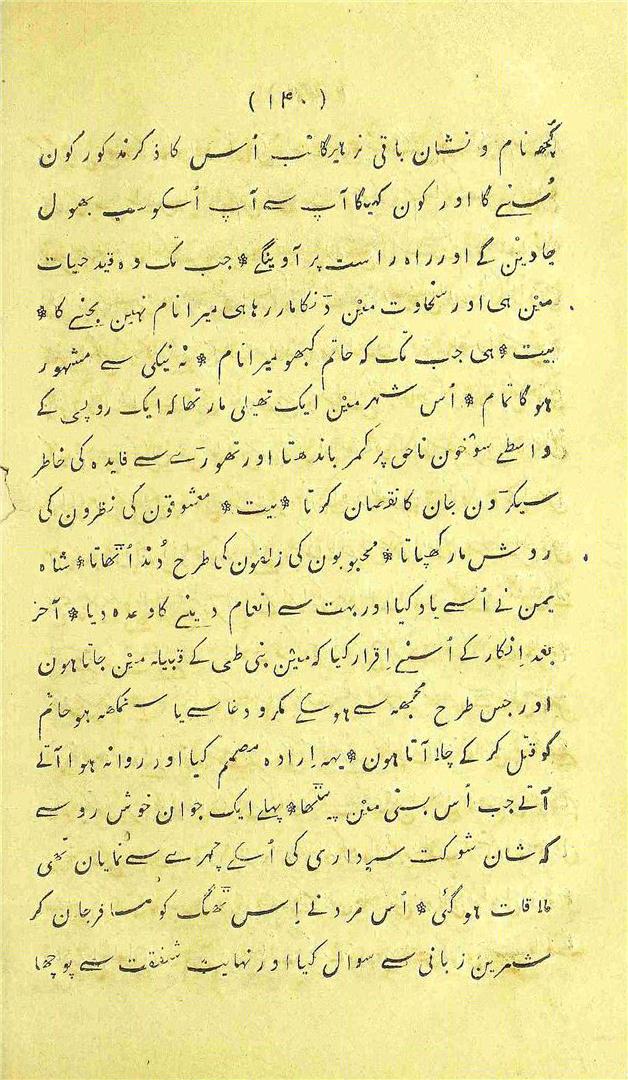 (۱۴۰)
کُچھ نام و نشان باقی نرہیگا تب اُس کا ذکر مذکور کون
سُنے گا اور کون کہیگا آپ سے آپ اُسکو سب بھول
جاوین گے اور راہ راست پر آوینگے * جب تک وہ قید حیات
مین ہی اور سخاوت مین ڈنکا مار رہا ہی میرا نام نہین بجنے کا *
بیت * ہی جب تک کہ حاتم کبھو میرا نام * نہ نیکی سے مشہور
ہو گا تمام * اُس شہر مین ایک تھیلی مار تھا کہ ایک روپی کے
واسطے سو خون ناحق پر کمر باندھتا اور تھورے سے فایدہ کی خاطر
سیکرون جان کا نقصان کرتا * بیت * معشوقون کی نظرون کی
روش مار کھپاتا * محبوبون کی زلفون کی طرح دُند اُٹھاتا * شاہ
یمن نے اُسے یاد کیا اور بہت سے انعام دینے کا وعدہ دیا * آخر
بعد اِنکار کے اُسنے اِقرار کیا کہ مین بنی طی کے قبیلہ مین جاتا ہون
اور جس طرح مجھہ سے ہو سکے مکر و دغا سے یا سنمکھہ ہو حاتم
کو قتل کر کے چلا آتا ہون * یہہ اِرادہ مصمم کیا اور روانہ ہوا آتے
آتے جب اُس بستی مین پہنچا * پہلے ایک جوان خوش رو سے
کہ شان شوکت سرداری کی اُسکے چہرے سے نمایان تھی
ملاقات ہو گئی * اُس مرد نے اِس ٹھگ کو مسافر جان کر
شیرین زبانی سے سوال کیا اور نہایت شفقت سے پوچھا